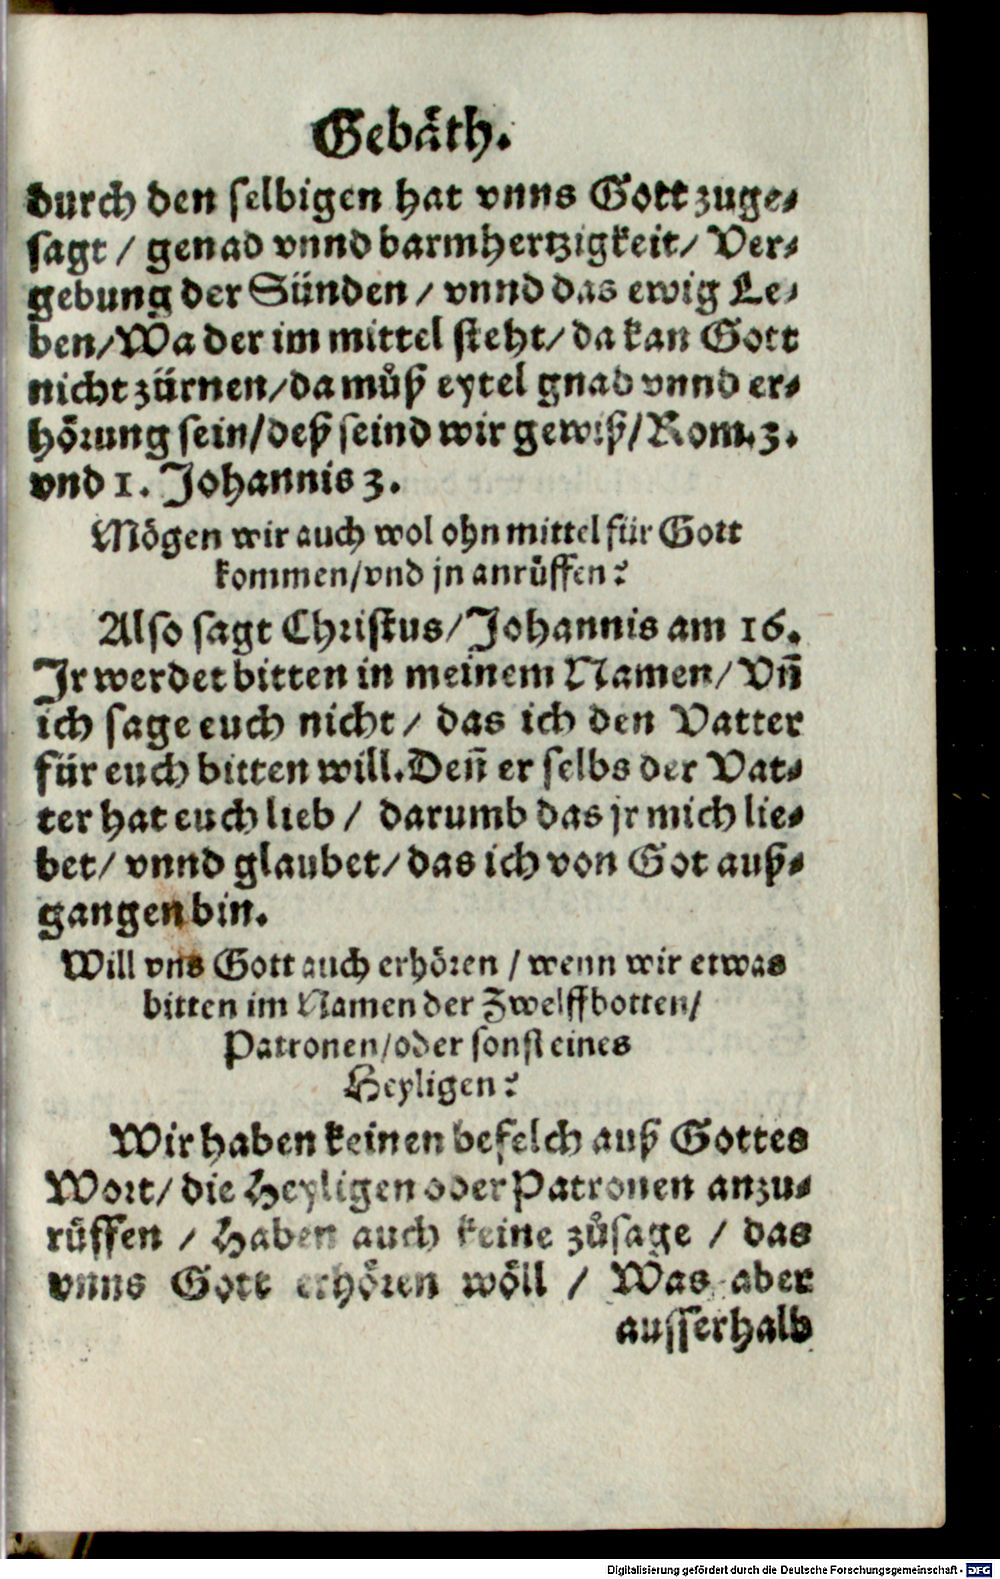 Gebäth.
durch den selbigen hat vnns Gott zuge⸗
sagt / genad vnnd barmhertzigkeit/ Ver⸗
gebung der Sünden / vnnd das ewig Le⸗
ben/Wa der im mittel steht/da kan Gott
nicht zürnen/da muͦß eytel gnad vnnd er⸗
hoͤrung sein/deß seind wir gewiß/Rom. 3.
vnd 1. Johannis 3.
Moͤgen wir auch wol ohn mittel für Gott
kommen/vnd jn anrüffen?
Also sagt Christus/Johannis am 16.
Jr werdet bitten in meinem Namen/ Vñ
ich sage euch nicht / das ich den Vatter
für euch bitten will. Deñ er selbs der Vat⸗
ter hat euch lieb / darumb das jr mich lie⸗
bet/ vnnd glaubet/das ich von Got auß⸗
gangen bin.
Will vns Gott auch erhoͤren / wenn wir etwas
bitten im Namen der Zwelffbotten/
Patronen/oder sonst eines
Heyligen?
Wir haben keinen befelch auß Gottes
Wort/ die Heyligen oder Patronen anzu⸗
rüffen / Haben auch keine zuͦsage / das
vnns Gott erhoͤren woͤll / Was aber
ausserhalb
Digitalisierung gefördert durch die Deutsche Forschungsgemeinschaft - DFG